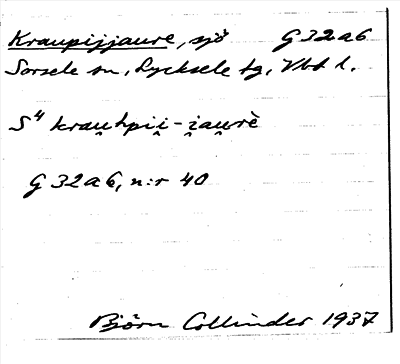 Kraupijjaure, sjö G 32 a 6
Sorsele sn, Lycksele tg, Vbt l.
S⁴ krau̯hpii̯-i̯au̯rè
G 32 a 6, n:r 40
Björn Collinder 1937